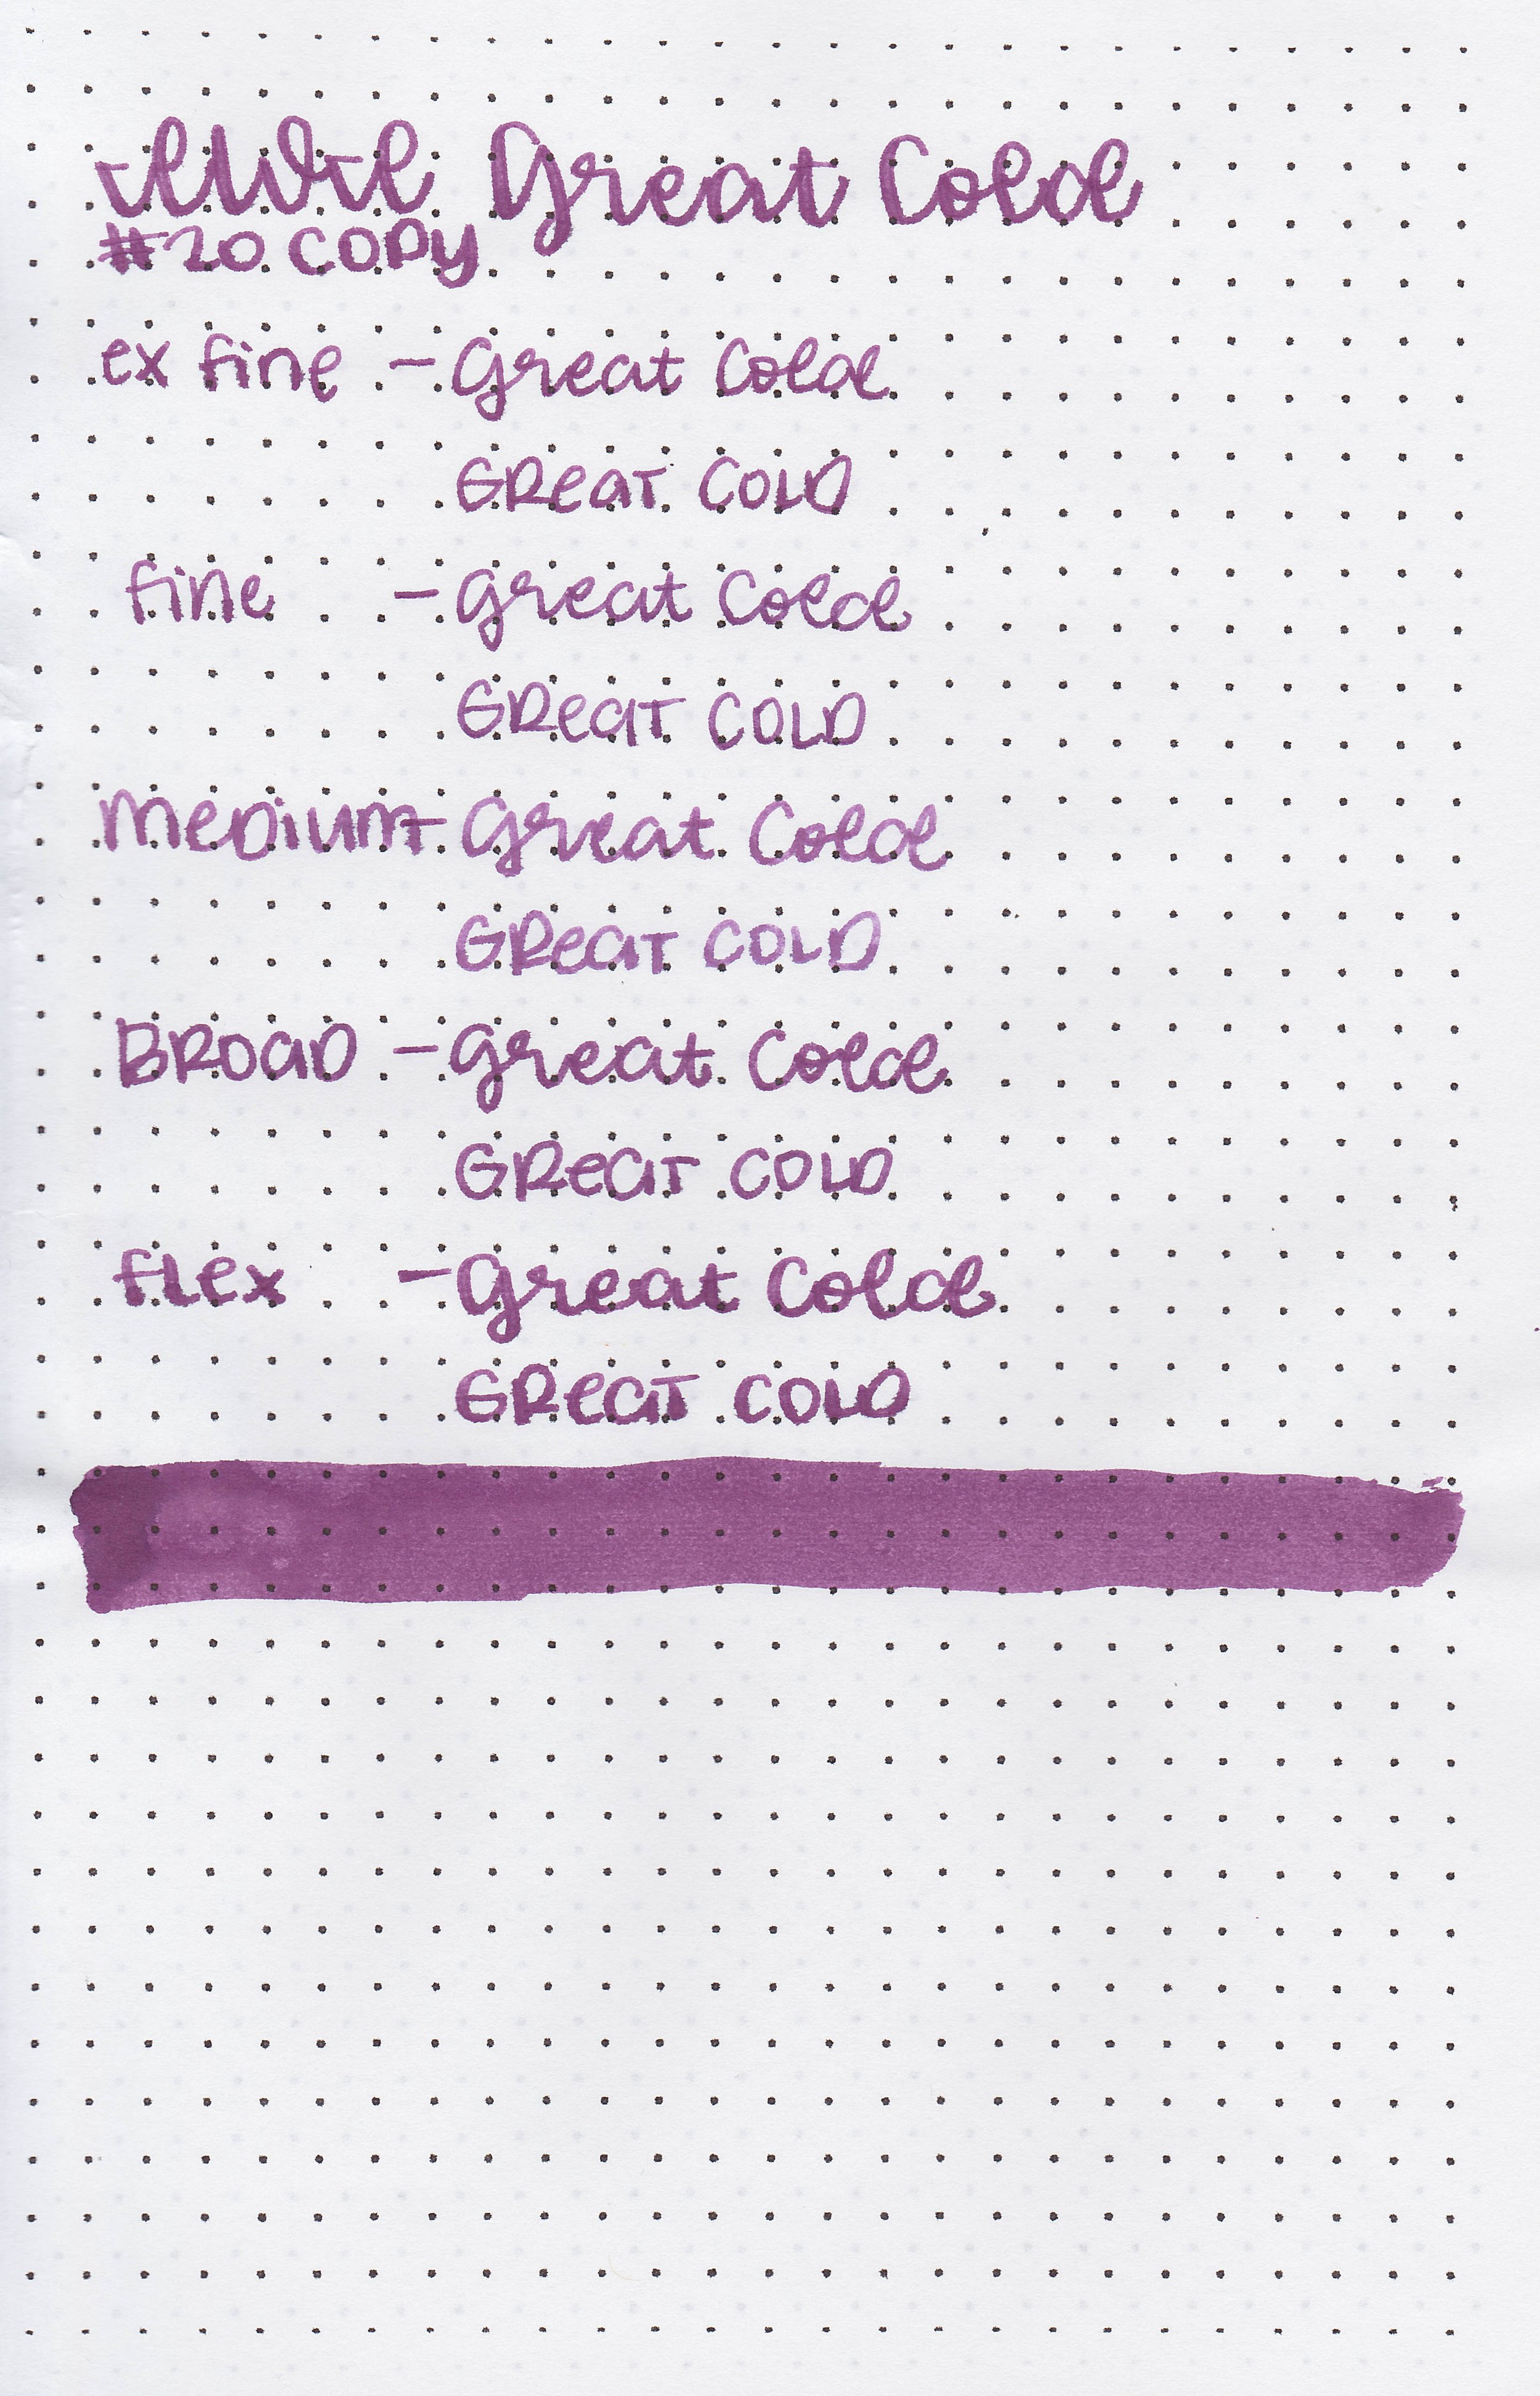 Great Cold
#20 COPY
ex fine - Great Cold
GReaT COLD
fine - Great Cold
GReaT COLD
MeDium - Great Cold
GReaT COLD
BROaD - Great Cold
GReaT COLD
fLex - Great Cold
GReaT COLD